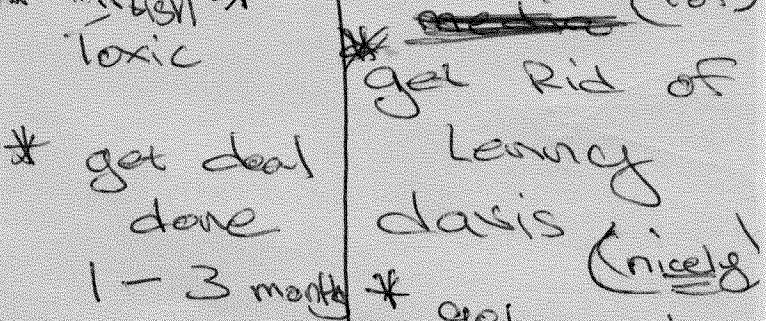 Toxic
* get deal
done
1 - 3 month
* get Rid of
Lenny
davis
(nicely)
*